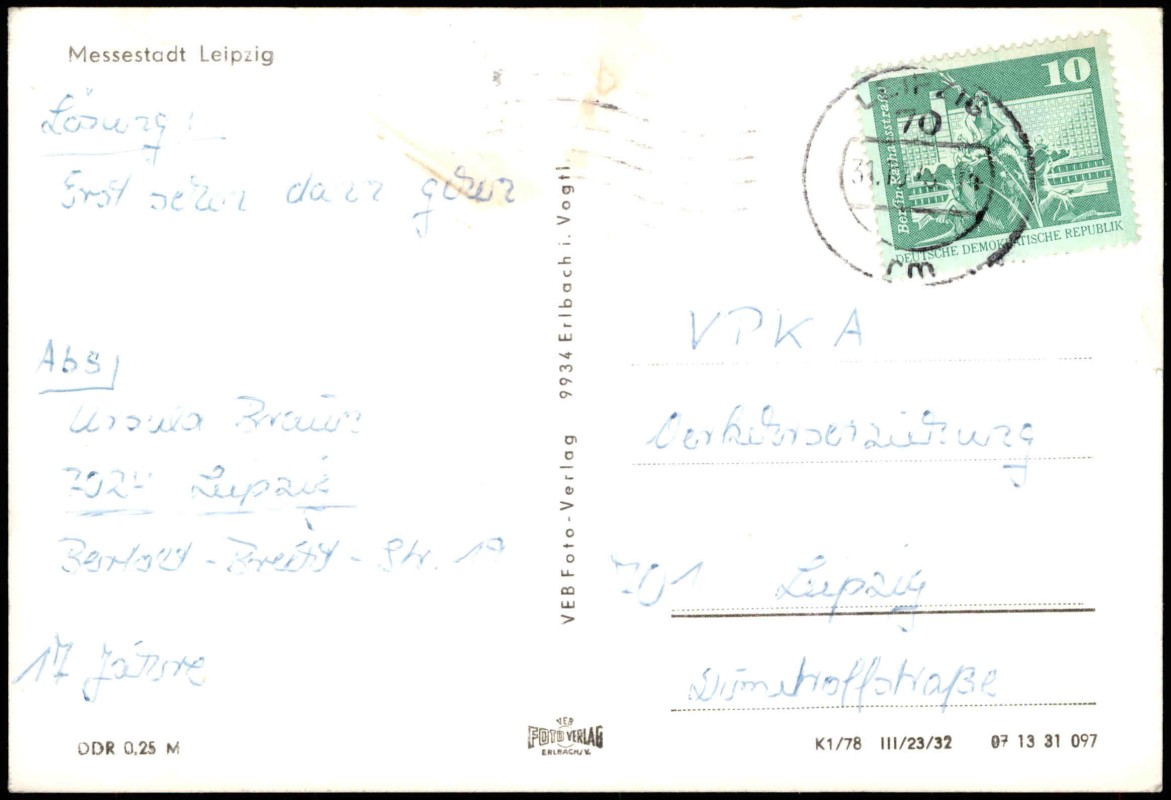 Messestadt Leipzig
Lösung!
Erst sehen dann gehen
Abs
Ursula Braun
7024 Leipzig
Bertolt-Brecht-Str. 19
17 Jahre
DDR 0,25 M
VEB Foto-Verlag 9934 Erlbach i. Vogtl.
VEB
FOTO VERLAG
ERLBACH/V.
10
Berlin, Rathausstraße
DEUTSCHE DEMOKRATISCHE REPUBLIK
LEIPZIG
70
31.
rm
VPKA
Verkehrserziehung
701 Leipzig
Dimitroffstraße
K1/78 III/23/32 07 13 31 097